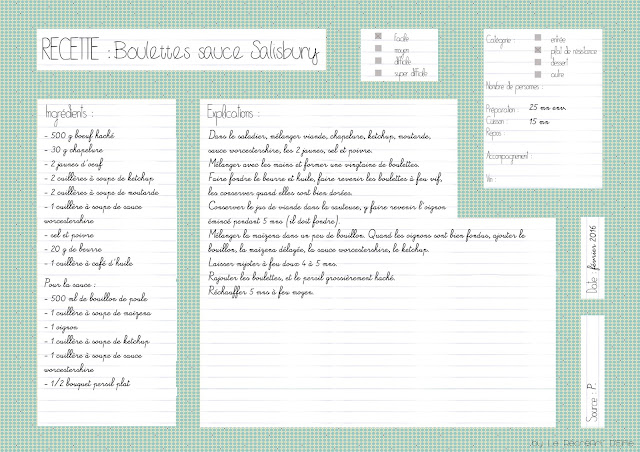 RECETTE : Boulettes sauce Salisbury
facile
moyen
difficile
super difficile
Catégorie :
entrée
plat de résistance
dessert
autre
Nombre de personnes :
Préparation : 25 mn env.
Cuisson : 15 mn
Repos :
Accompagnement :
Vin :
Ingrédients :
- 500 g boeuf haché
- 30 g chapelure
- 2 jaunes d'oeuf
- 2 cuillères à soupe de ketchup
- 2 cuillères à soupe de moutarde
- 1 cuillère à soupe de sauce
worcestershire
- sel et poivre
- 20 g de beurre
- 1 cuillère à café d'huile
Pour la sauce :
- 500 ml de bouillon de poule
- 1 cuillère à soupe de maïzena
- 1 oignon
- 1 cuillère à soupe de ketchup
- 1 cuillère à soupe de sauce
worcestershire
- 1/2 bouquet persil plat
Explications :
Dans le saladier, mélanger viande, chapelure, ketchup, moutarde,
sauce worcestershire, les 2 jaunes, sel et poivre.
Mélanger avec les mains et former une vingtaine de boulettes.
Faire fondre le beurre et huile, faire revenir les boulettes à feu vif,
les conserver quand elles sont bien dorées.
Conserver le jus de viande dans la sauteuse, y faire revenir l'oignon
émincé pendant 5 mns (il doit fondre).
Mélanger la maïzena dans un peu de bouillon. Quand les oignons sont bien fondus, ajouter le
bouillon, la maïzena délayée, la sauce worcestershire, le ketchup.
Laisser mijoter à feu doux 4 à 5 mns.
Rajouter les boulettes, et le persil grossièrement haché.
Réchauffer 5 mns à feu moyen.
Date : février 2016
Source : P.
by La Décréam' D'Elfie